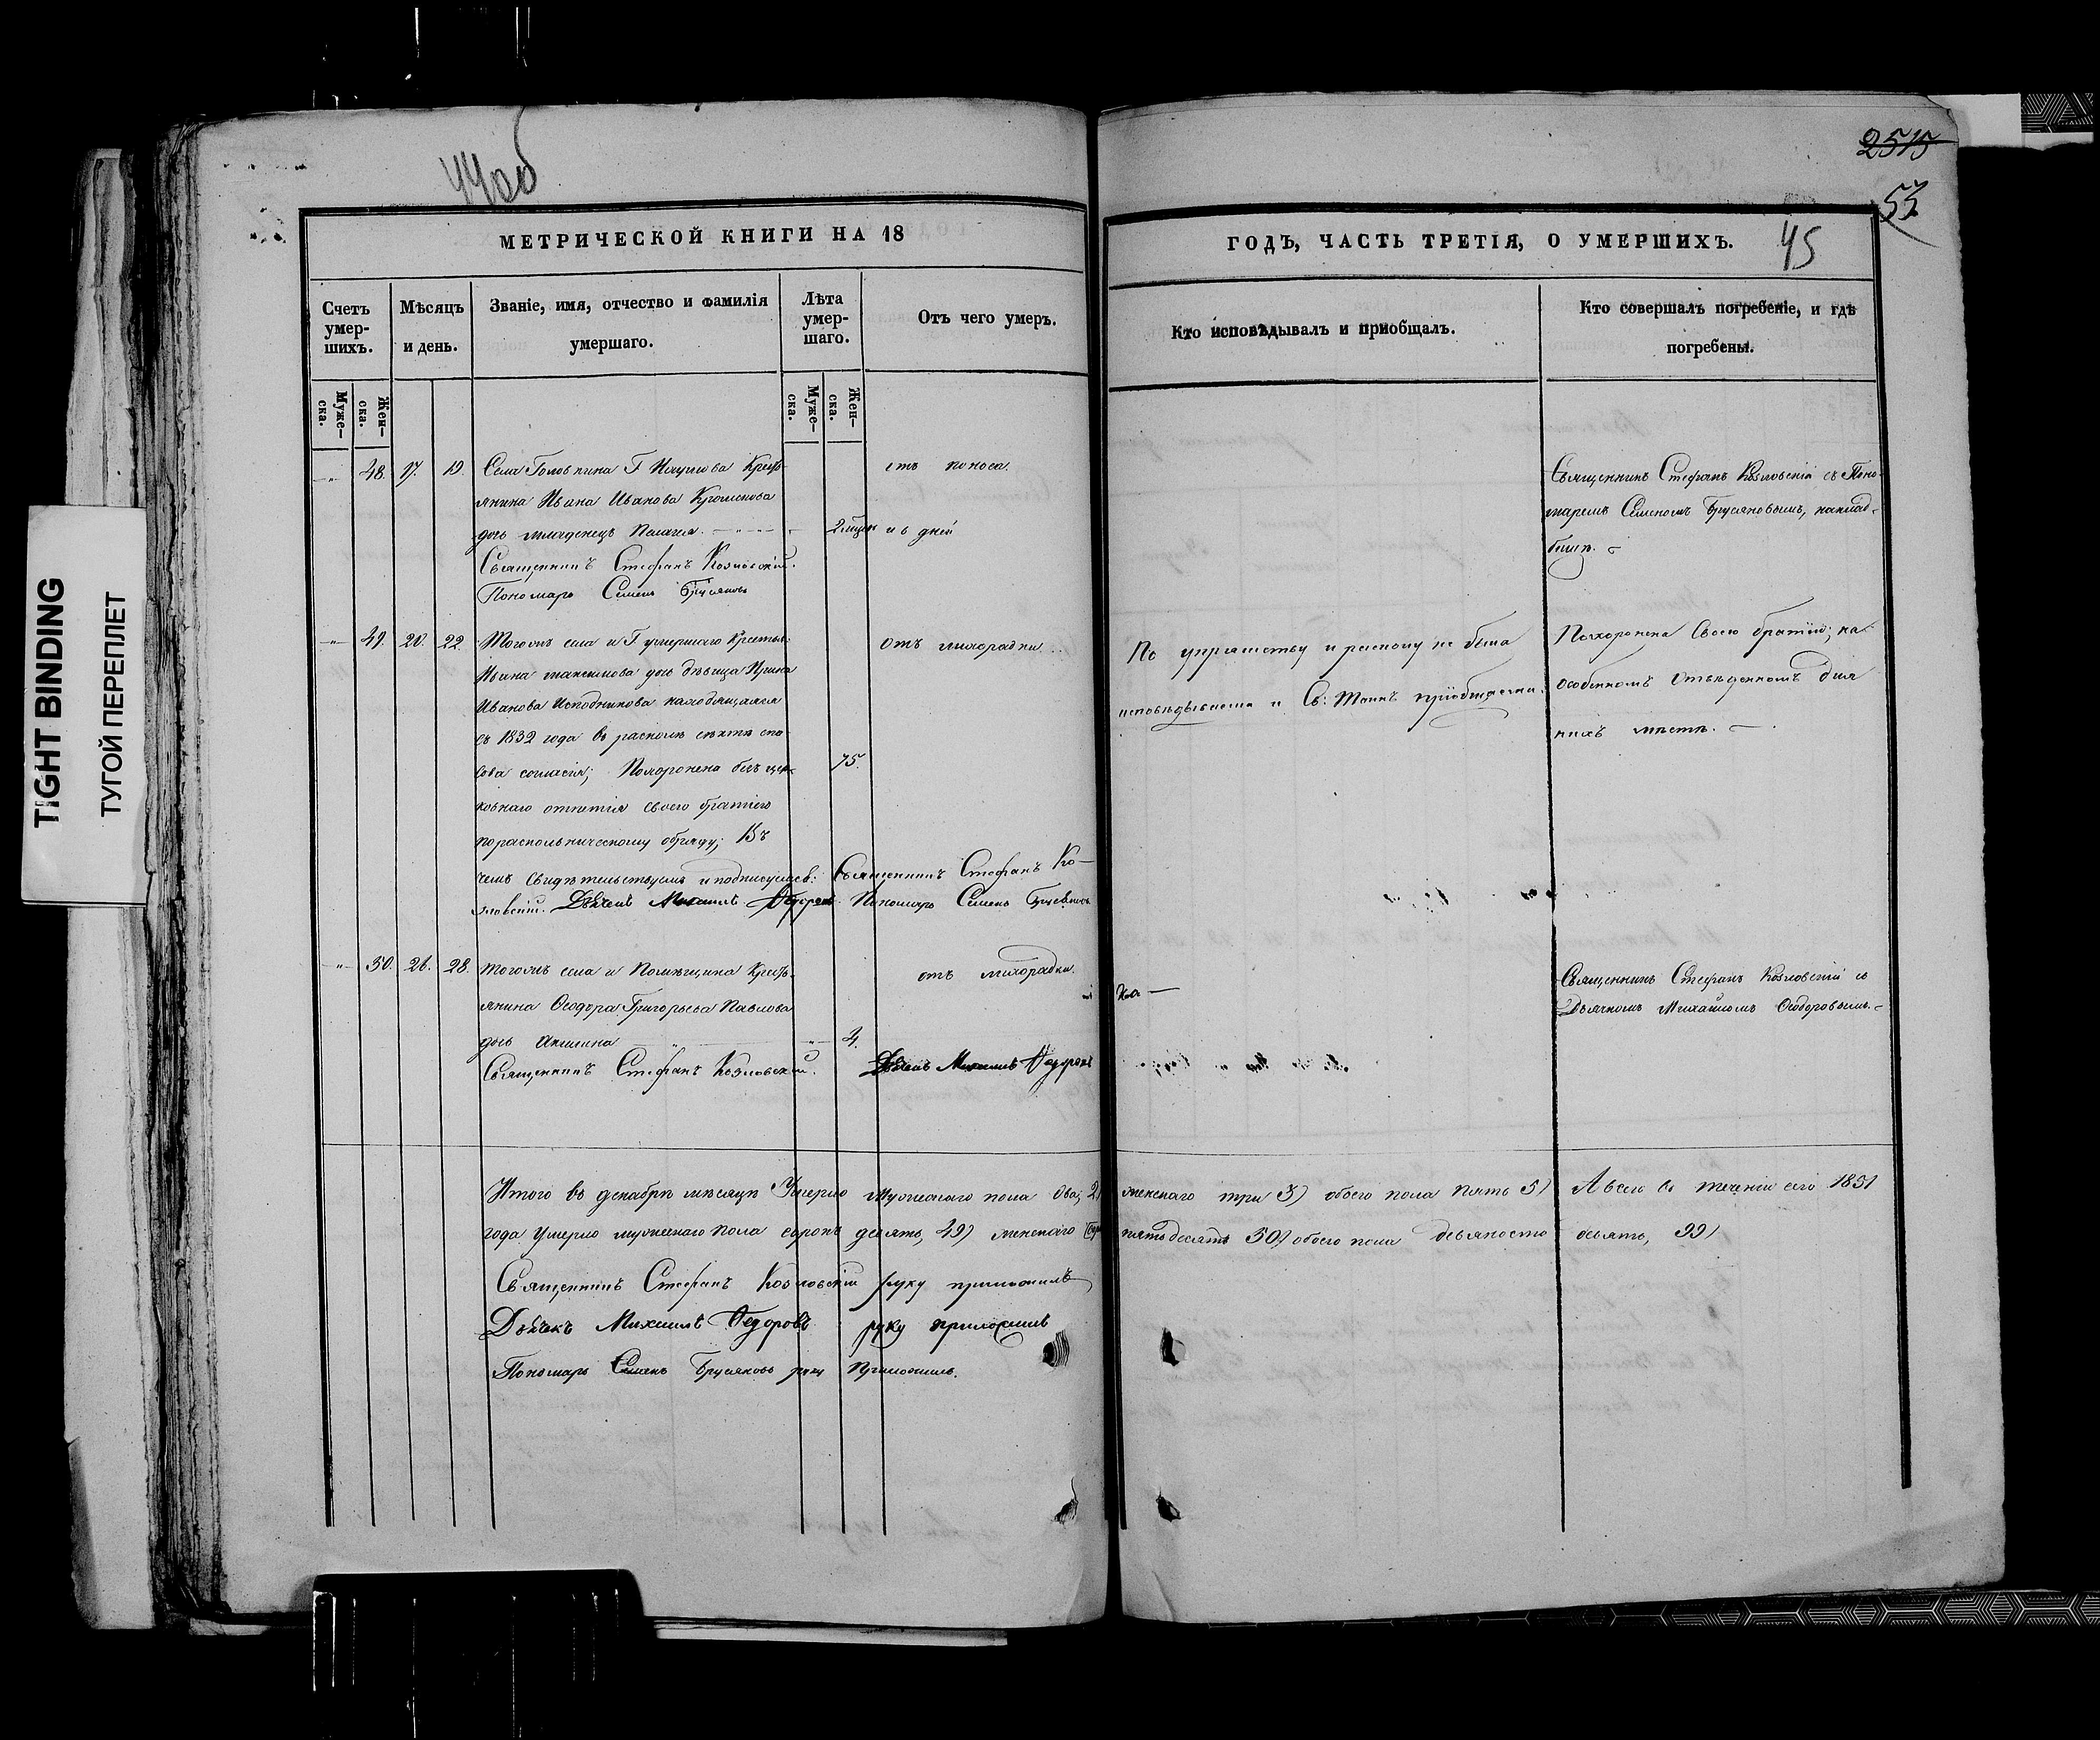 TIGHT BINDING
ТУГОЙ ПЕРЕПЛЕТ
44об
2515
53
45
МЕТРИЧЕСКОЙ КНИГИ НА 18
ГОДЪ, ЧАСТЬ ТРЕТІЯ, О УМЕРШИХЪ.
Счетъ умер-шихъ.
Мѣсяцъ и день.
Званіе, имя, отчество и фамилія умершаго.
Лѣта умер-шаго.
Отъ чего умеръ.
Кто исповѣдывалъ и приобщалъ.
Кто совершалъ погребеніе, и гдѣ погребены.
Муже-ска.
Жен-ска.
Муже-ска.
Жен-ска.
48. 17. 19. Села Головкина Г Наумова Кресть-
янина Ивана Иванова
дочь младенецъ Пелагея. 2 мѣсяц и 6 дней
отъ поноса.
Священникъ Стефанъ Козловскій съ Поно-
маремъ Семеномъ Брусяновымъ, на клад-
бищѣ.
Священникъ Стефанъ Козловскій.
Пономарь Семенъ Брусяновъ
49. 20. 22. Тогожъ села и Г умершаго Крестья:
Ивана максимова дочь дѣвица Ирина
Иванова Исподникова находящаяся
съ 1832 года въ расколѣ сѣктѣ спа
сова согласія; Похоронена безъ цер- 75.
ковнаго отпетія своею братіею
по раскольническому обряду; Въ
чемъ свидѣтельствуемъ и подписуемся: Священникъ Стефанъ Ко-
зловскій. Дьячекъ Михаилъ Федоровъ Пономарь Семенъ Брусяновъ
отъ лихорадки
По упрямству и расколу не была
исповѣдываема и Св: Таинъ приобщаема.
Похоронена Своею братіею; на
особенномъ отведенномъ для
нихъ мѣстѣ.
50. 26. 28. тогожъ села и Помѣщика Кресть-
янина Феодора Григорьева Павлова
дочь Акилина 4.
отъ лихорадки.
Священникъ Стефанъ Козловскій съ
Дьячкомъ Михаиломъ Феодоровымъ.
Священникъ Стефанъ Козловскій. Дьячекъ Михаилъ Федоровъ
Итого въ декабрѣ мѣсяцѣ Умерло мужескаго пола два; 2) женскаго три 3) обоего пола пять 5) А всего въ теченіи сего 1851
года умерло мужескаго пола сорокъ девять, 49) женскаго пятьдесятъ 50) обоего пола девяносто девять, 99)
Священникъ Стефанъ Козловскій руку приложилъ
Дьячекъ Михаилъ Федоровъ руку приложилъ
Пономарь Семенъ Брусяновъ руку приложилъ.